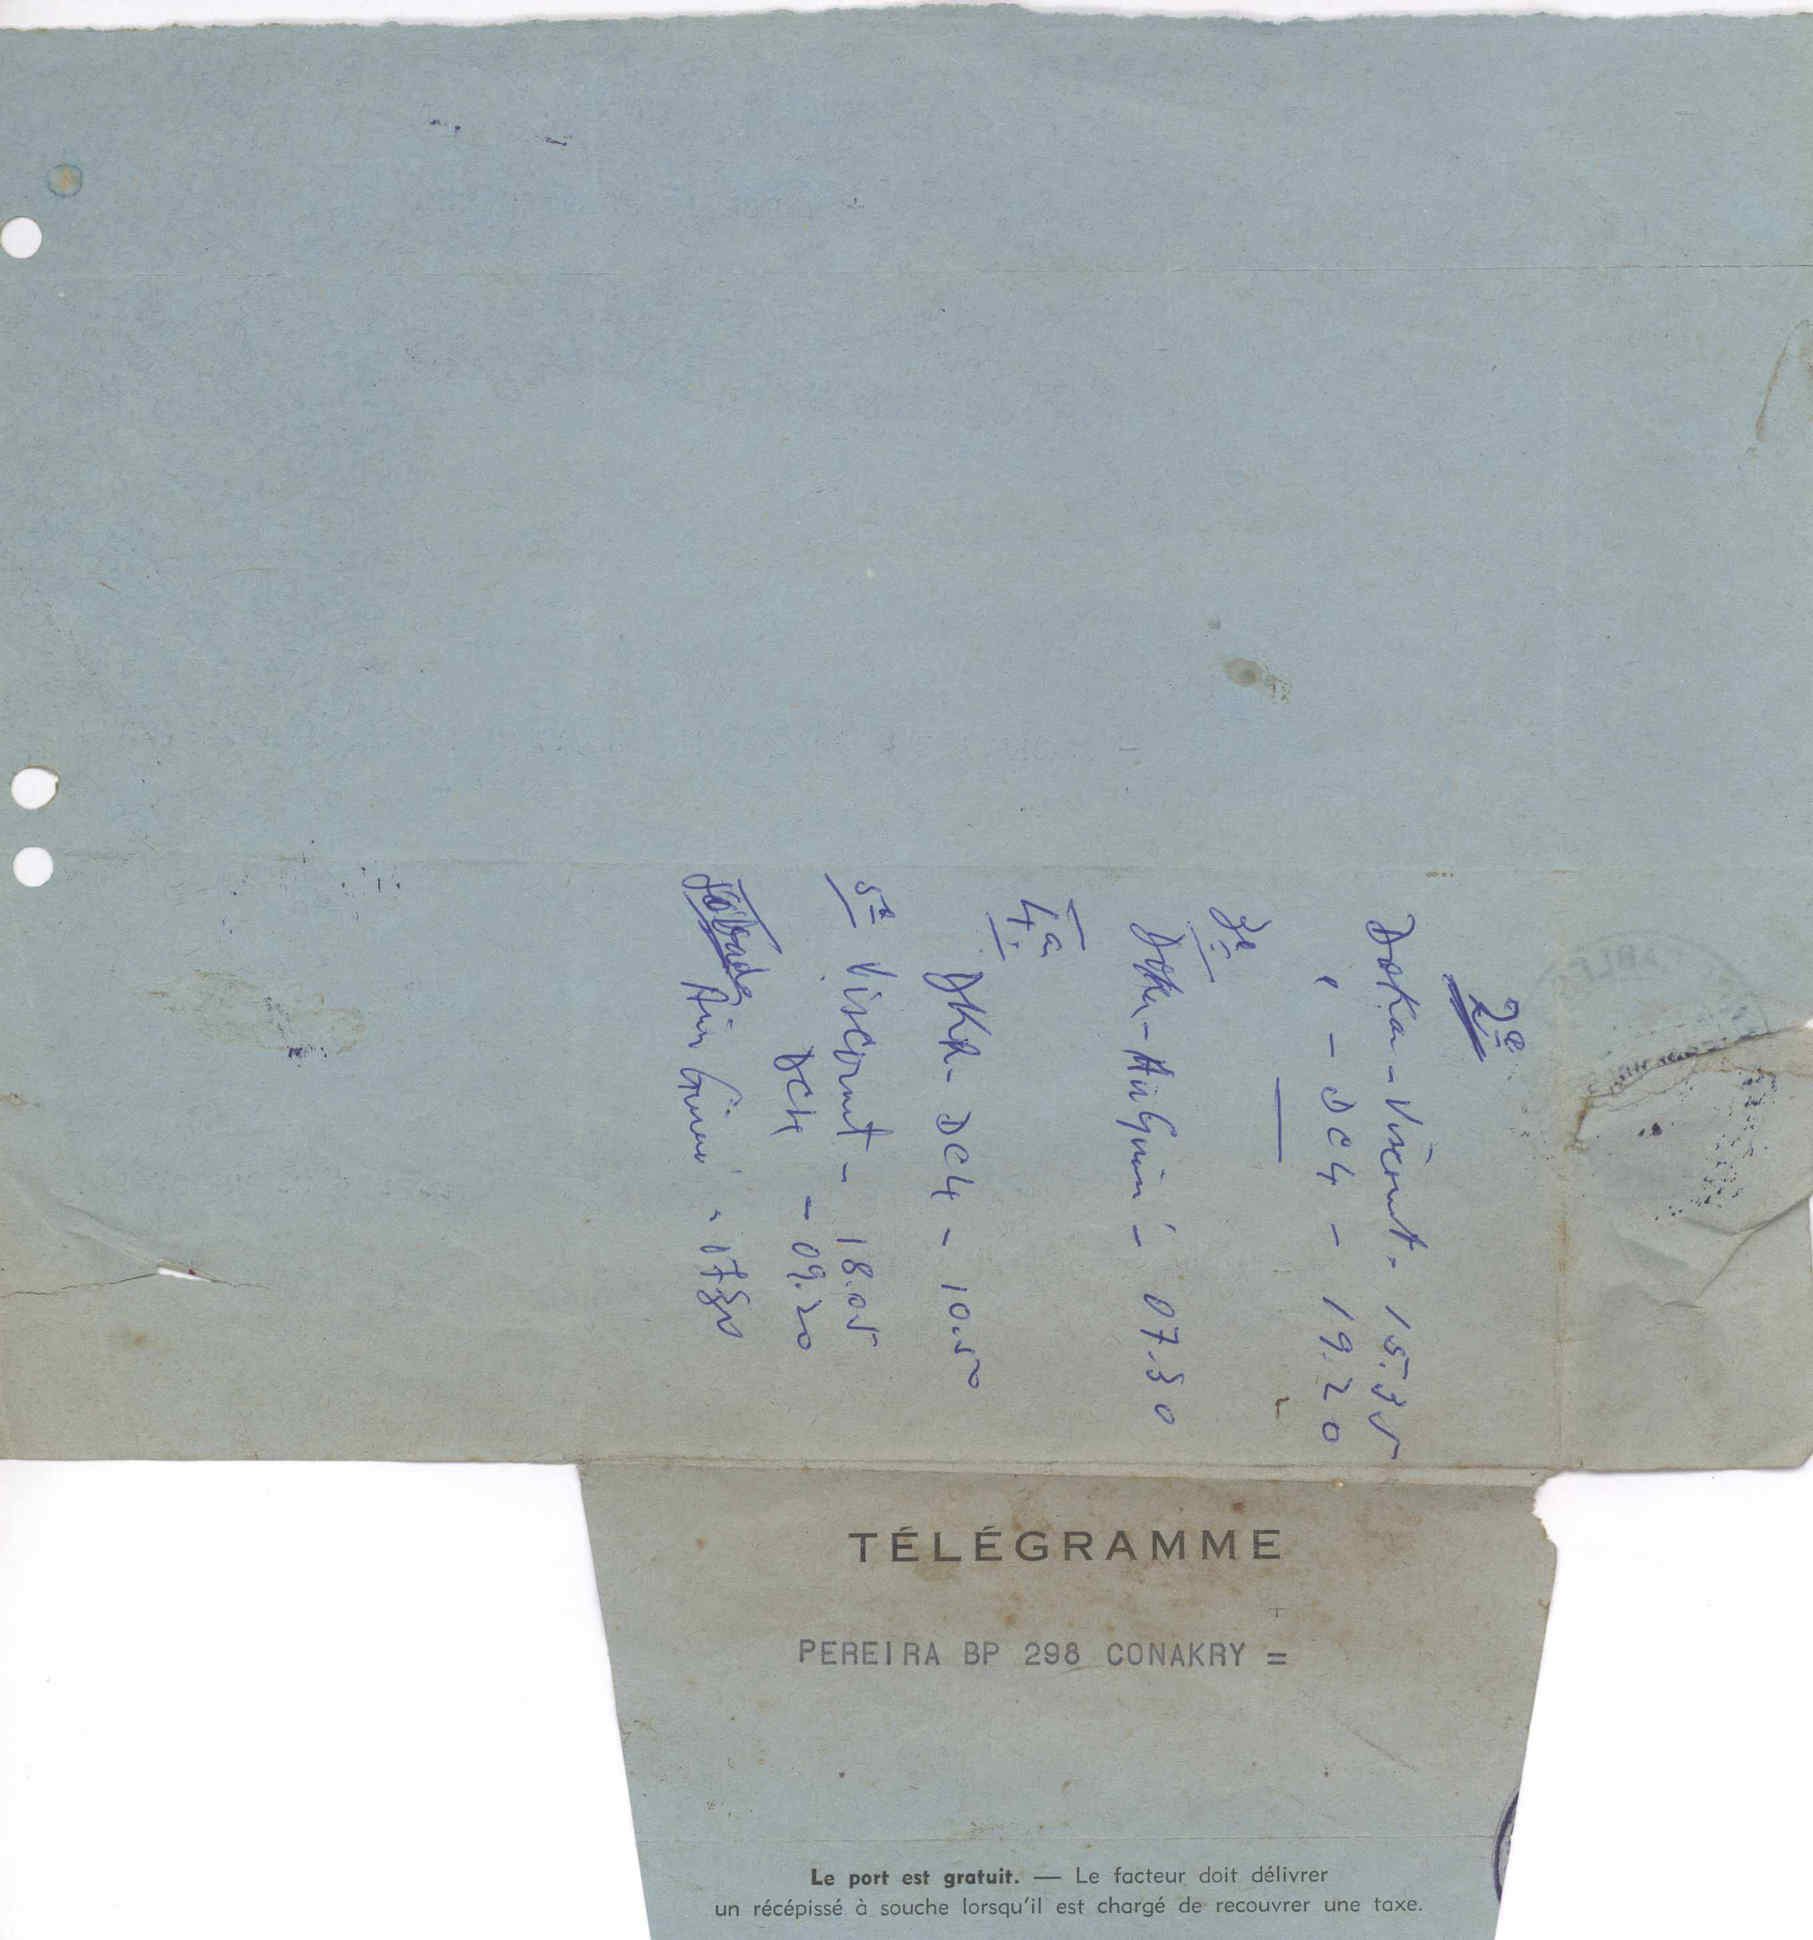 2ª
Dakar - Viscount - 15.35
" - DC4 - 19.20
3ª
Dakar - Air Guiné - 07.30
4ª
DKR - DC4 - 10.50
5ª Viscount - 18.05
DC4 - 09.20
Sábado Air Guiné - 07.30
TÉLÉGRAMME
PEREIRA BP 298 CONAKRY =
Le port est gratuit. — Le facteur doit délivrer
un récépissé à souche lorsqu'il est chargé de recouvrer une taxe.